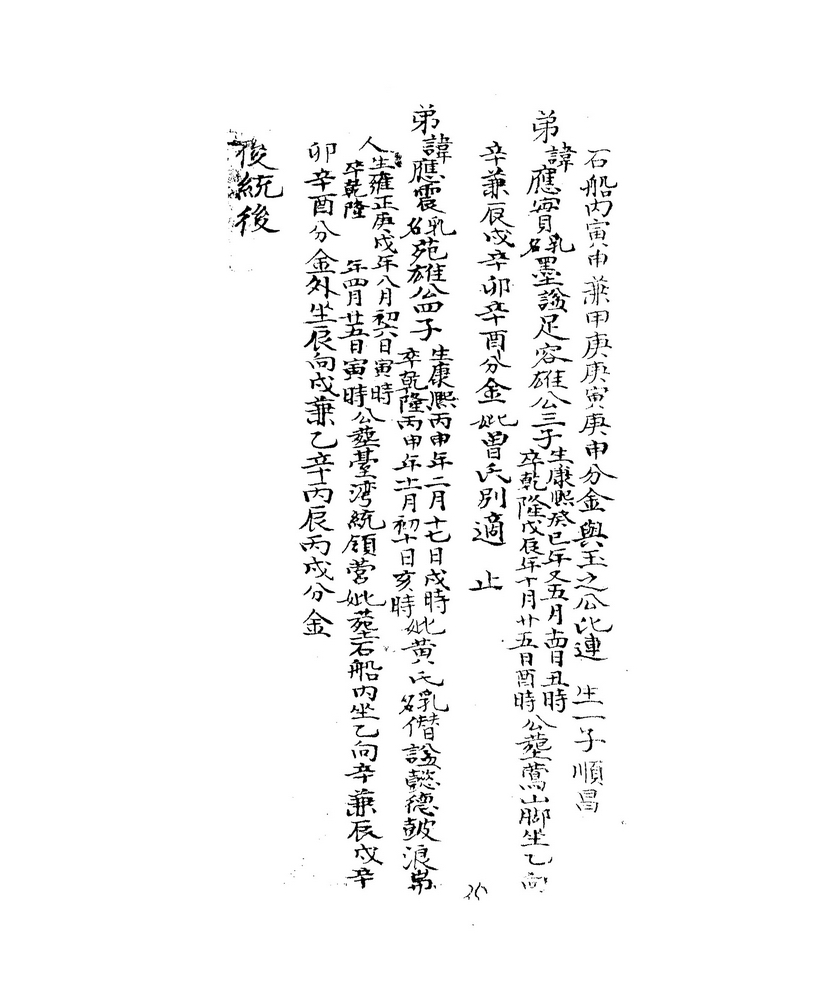 石船內寅申兼甲庚庚寅庚申分金與玉之公比連 生一子順昌
弟諱應實乳名墨謚足容雄公三子生康熙癸巳年又五月十四日丑時卒乾隆戊辰年十月廿五日酉時公塟鶯山脚坐乙向
辛兼辰戌辛卯辛酉分金妣曾氏別適 止
弟諱應震乳名苑雄公四子生康熙丙申年二月十七日戌時卒乾隆丙申年十一月初十日亥時妣黃氏乳名僭謚懿德鼓浪
人生雍正庚戌年八月初六日寅時卒乾隆 年四月廿五日寅時公塟臺湾統領營妣塟石船內坐乙向辛兼辰戌辛
卯辛酉分金外坐辰向戌兼乙辛丙辰丙戌分金
後統後
25